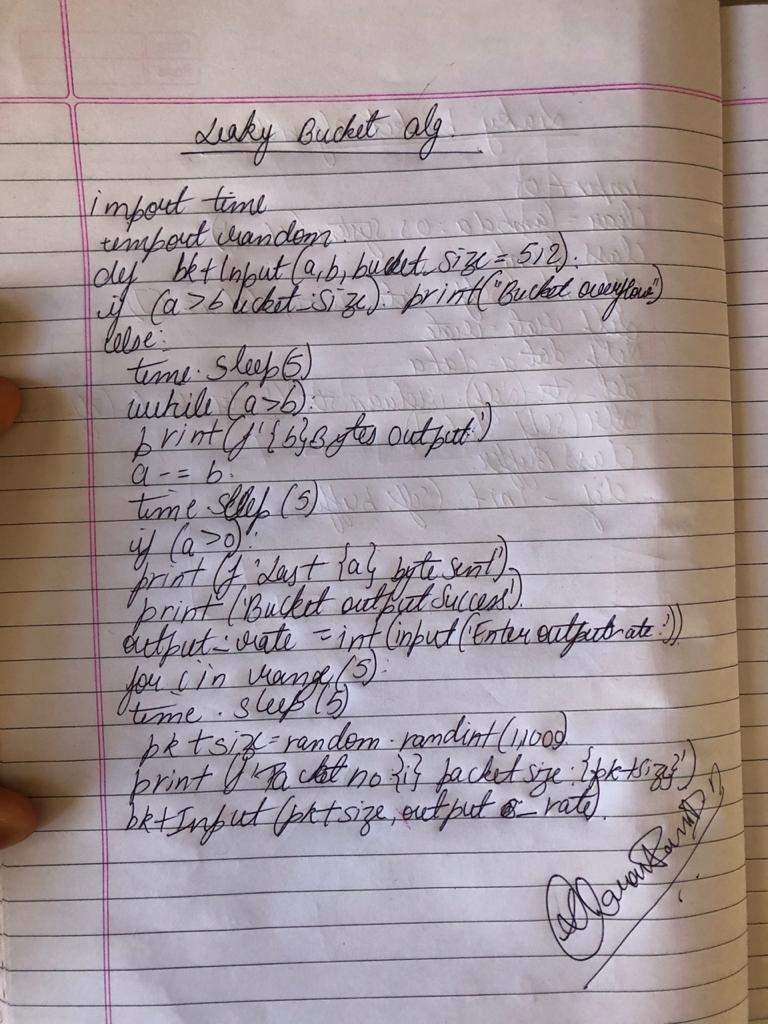 Leaky Bucket alg.
import time
import random.
def bktInput(a,b,bucket_size = 512):
if (a>bucket_size): print("Bucket overflow")
else:
time.sleep(5)
while (a>b):
print(f'{b}Bytes output')
a -= b.
time.sleep(5)
if (a>0):
print(f'Last {a} byte sent')
print('Bucket output success')
output_rate = int(input('Enter output rate:'))
for i in range(5):
time.sleep(5)
pktsize = random.randint(1,1000)
print(f'Packet no {i} packet size: {pktsize}')
bktInput(pktsize, output_rate).